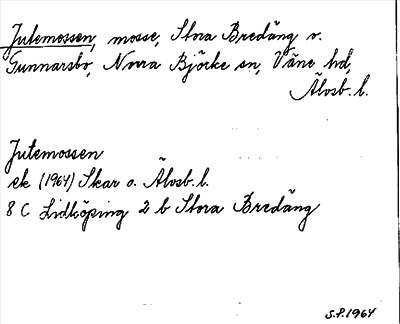 Jutemossen, mosse, Stora Bredäng v.
Gunnarsbo, Norra Björke sn, Väne hd,
Älvsb. l.
Jutemossen
ek (1964) Skar o. Älvsb. l.
8 C Lidköping 2 b Stora Bredäng
S.P. 1964